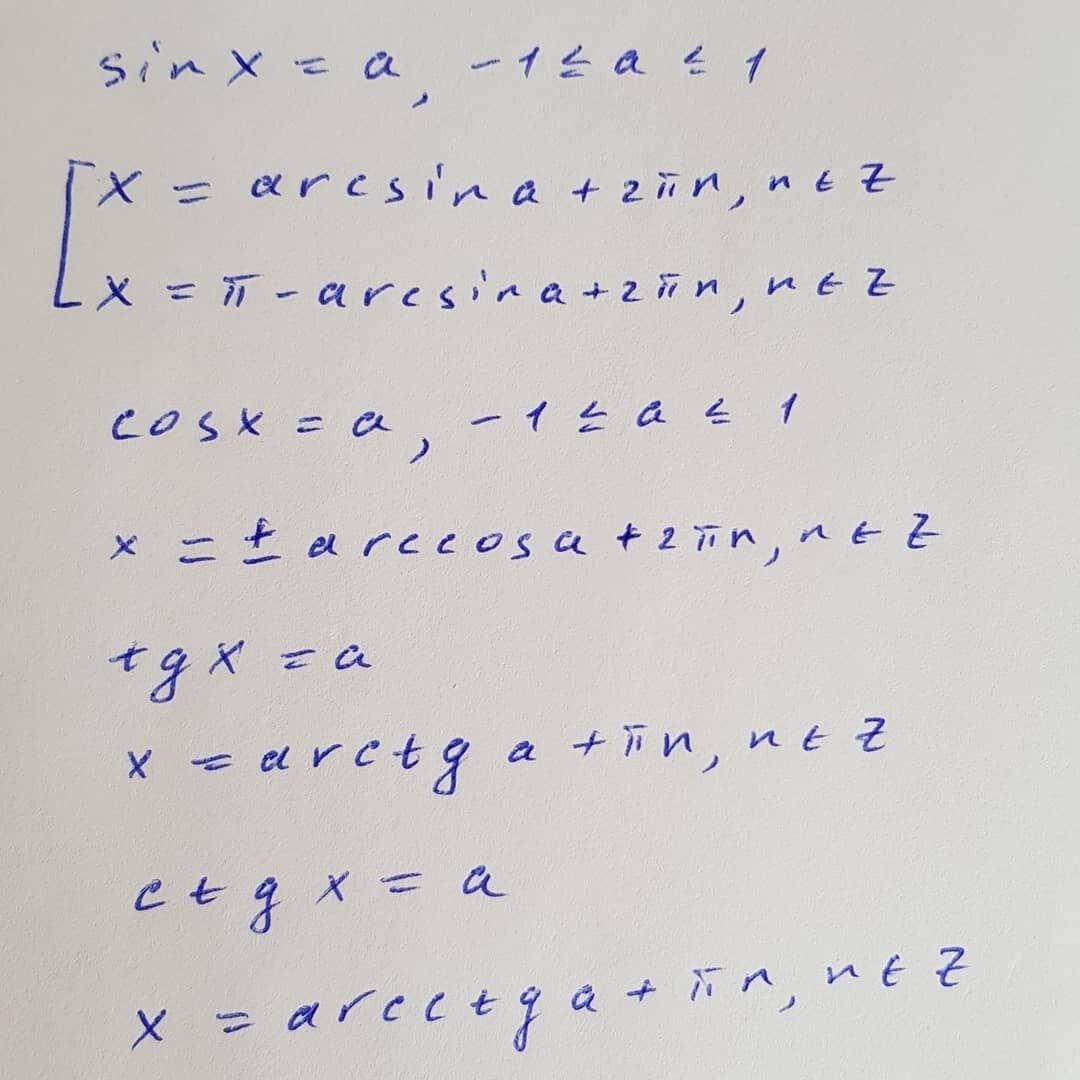 sin x = a, -1 ≤ a ≤ 1
x = arcsin a + 2πn, n ∈ Z
x = π - arcsin a + 2πn, n ∈ Z
cos x = a, -1 ≤ a ≤ 1
x = ± arccos a + 2πn, n ∈ Z
tg x = a
x = arctg a + πn, n ∈ Z
ctg x = a
x = arcctg a + πn, n ∈ Z